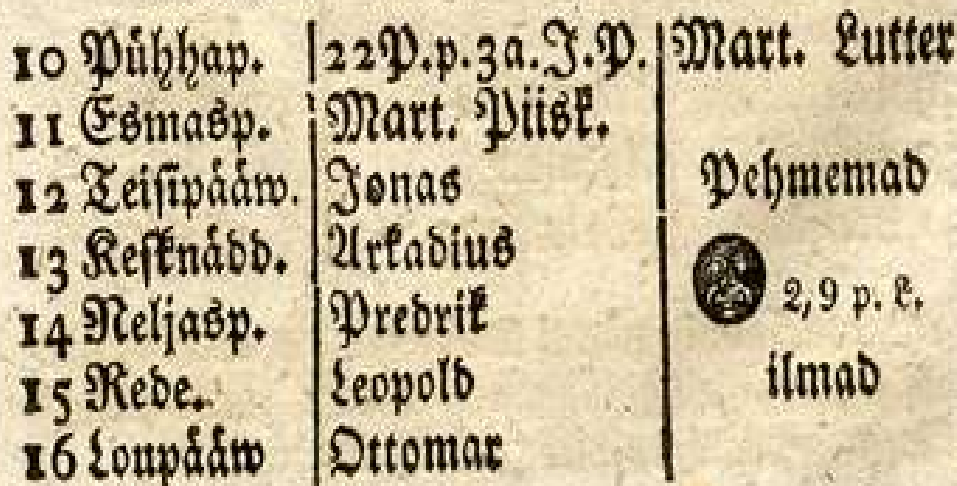 10 Pühhap. 22P.p.3a.J.P. Mart. Lutter
11 Esmasp. Mart. Piisk.
12 Teisipääw. Jonas Pehmemad
13 Kesknädd. Arkadius
14 Neljasp. Predrik 2,9 p. L.
15 Rede. Leopold ilmad
16 Loupääw Ottomar